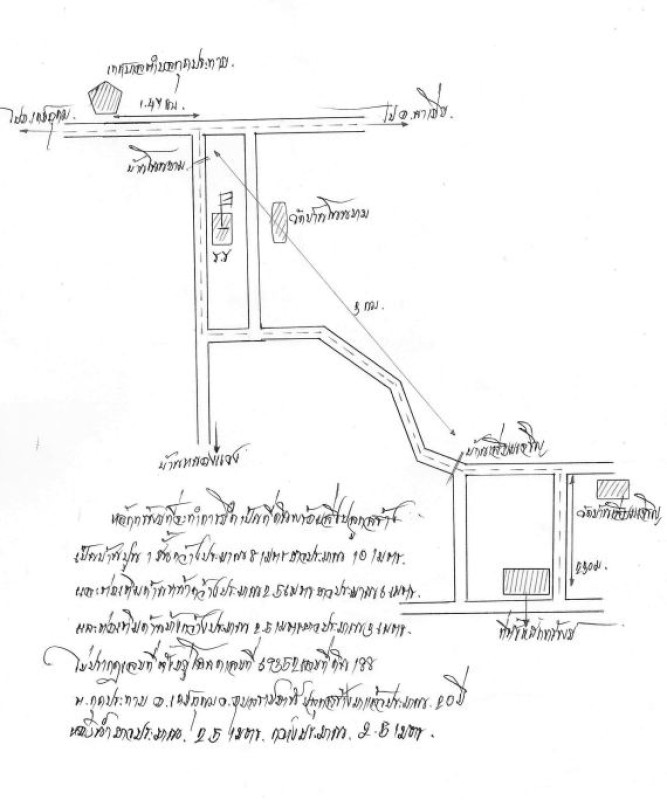 เทศบาลตำบลกุดประทาย.
ไป อ.เดชอุดม.
1.47 กม.
ไป อ.นาเยีย.
บ้านโนนขาม
วัดบ้านโนนขาม
ร.ร
3 กม.
บ้านเจริญ
บ้านหนองแวง
วัดบ้าน
230 ม.
ที่ตั้งหลักทรัพย์
หลักทรัพย์ที่จะทำการยึดเป็นที่ดินพร้อมสิ่งปลูกสร้าง
เป็นบ้านปูน 1 ชั้นกว้างประมาณ 8 เมตร ยาวประมาณ 10 เมตร.
และต่อเติมด้านหน้ากว้างประมาณ 2.5 เมตร ยาวประมาณ 6 เมตร.
และต่อเติมด้านข้างกว้างประมาณ 2.5 เมตร ยาวประมาณ 3 เมตร.
ไม่ปรากฏเลขที่ ตั้งอยู่โฉนดเลขที่ เลขที่ดิน 198
ต.กุดประทาย อ.เดชอุดม จ.อุบลราชธานี ปลูกสร้างมาแล้วประมาณ 20 ปี
ห้องน้ำยาวประมาณ. 2.5 เมตร. กว้างประมาณ. 2.5 เมตร.